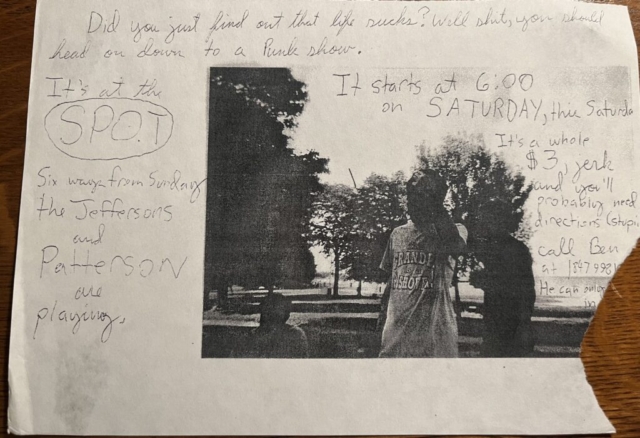 Did you just find out that life sucks? Well shit, you should
head on down to a Punk show.
It's at the
SPOT
Six ways from Sunday
the Jeffersons
and
Patterson
are
playing.
It starts at 6:00
on SATURDAY, this Saturda
It's a whole
$3, jerk
and you'll
probably need
directions (stupi
call Ben
at 1847998
He can
in